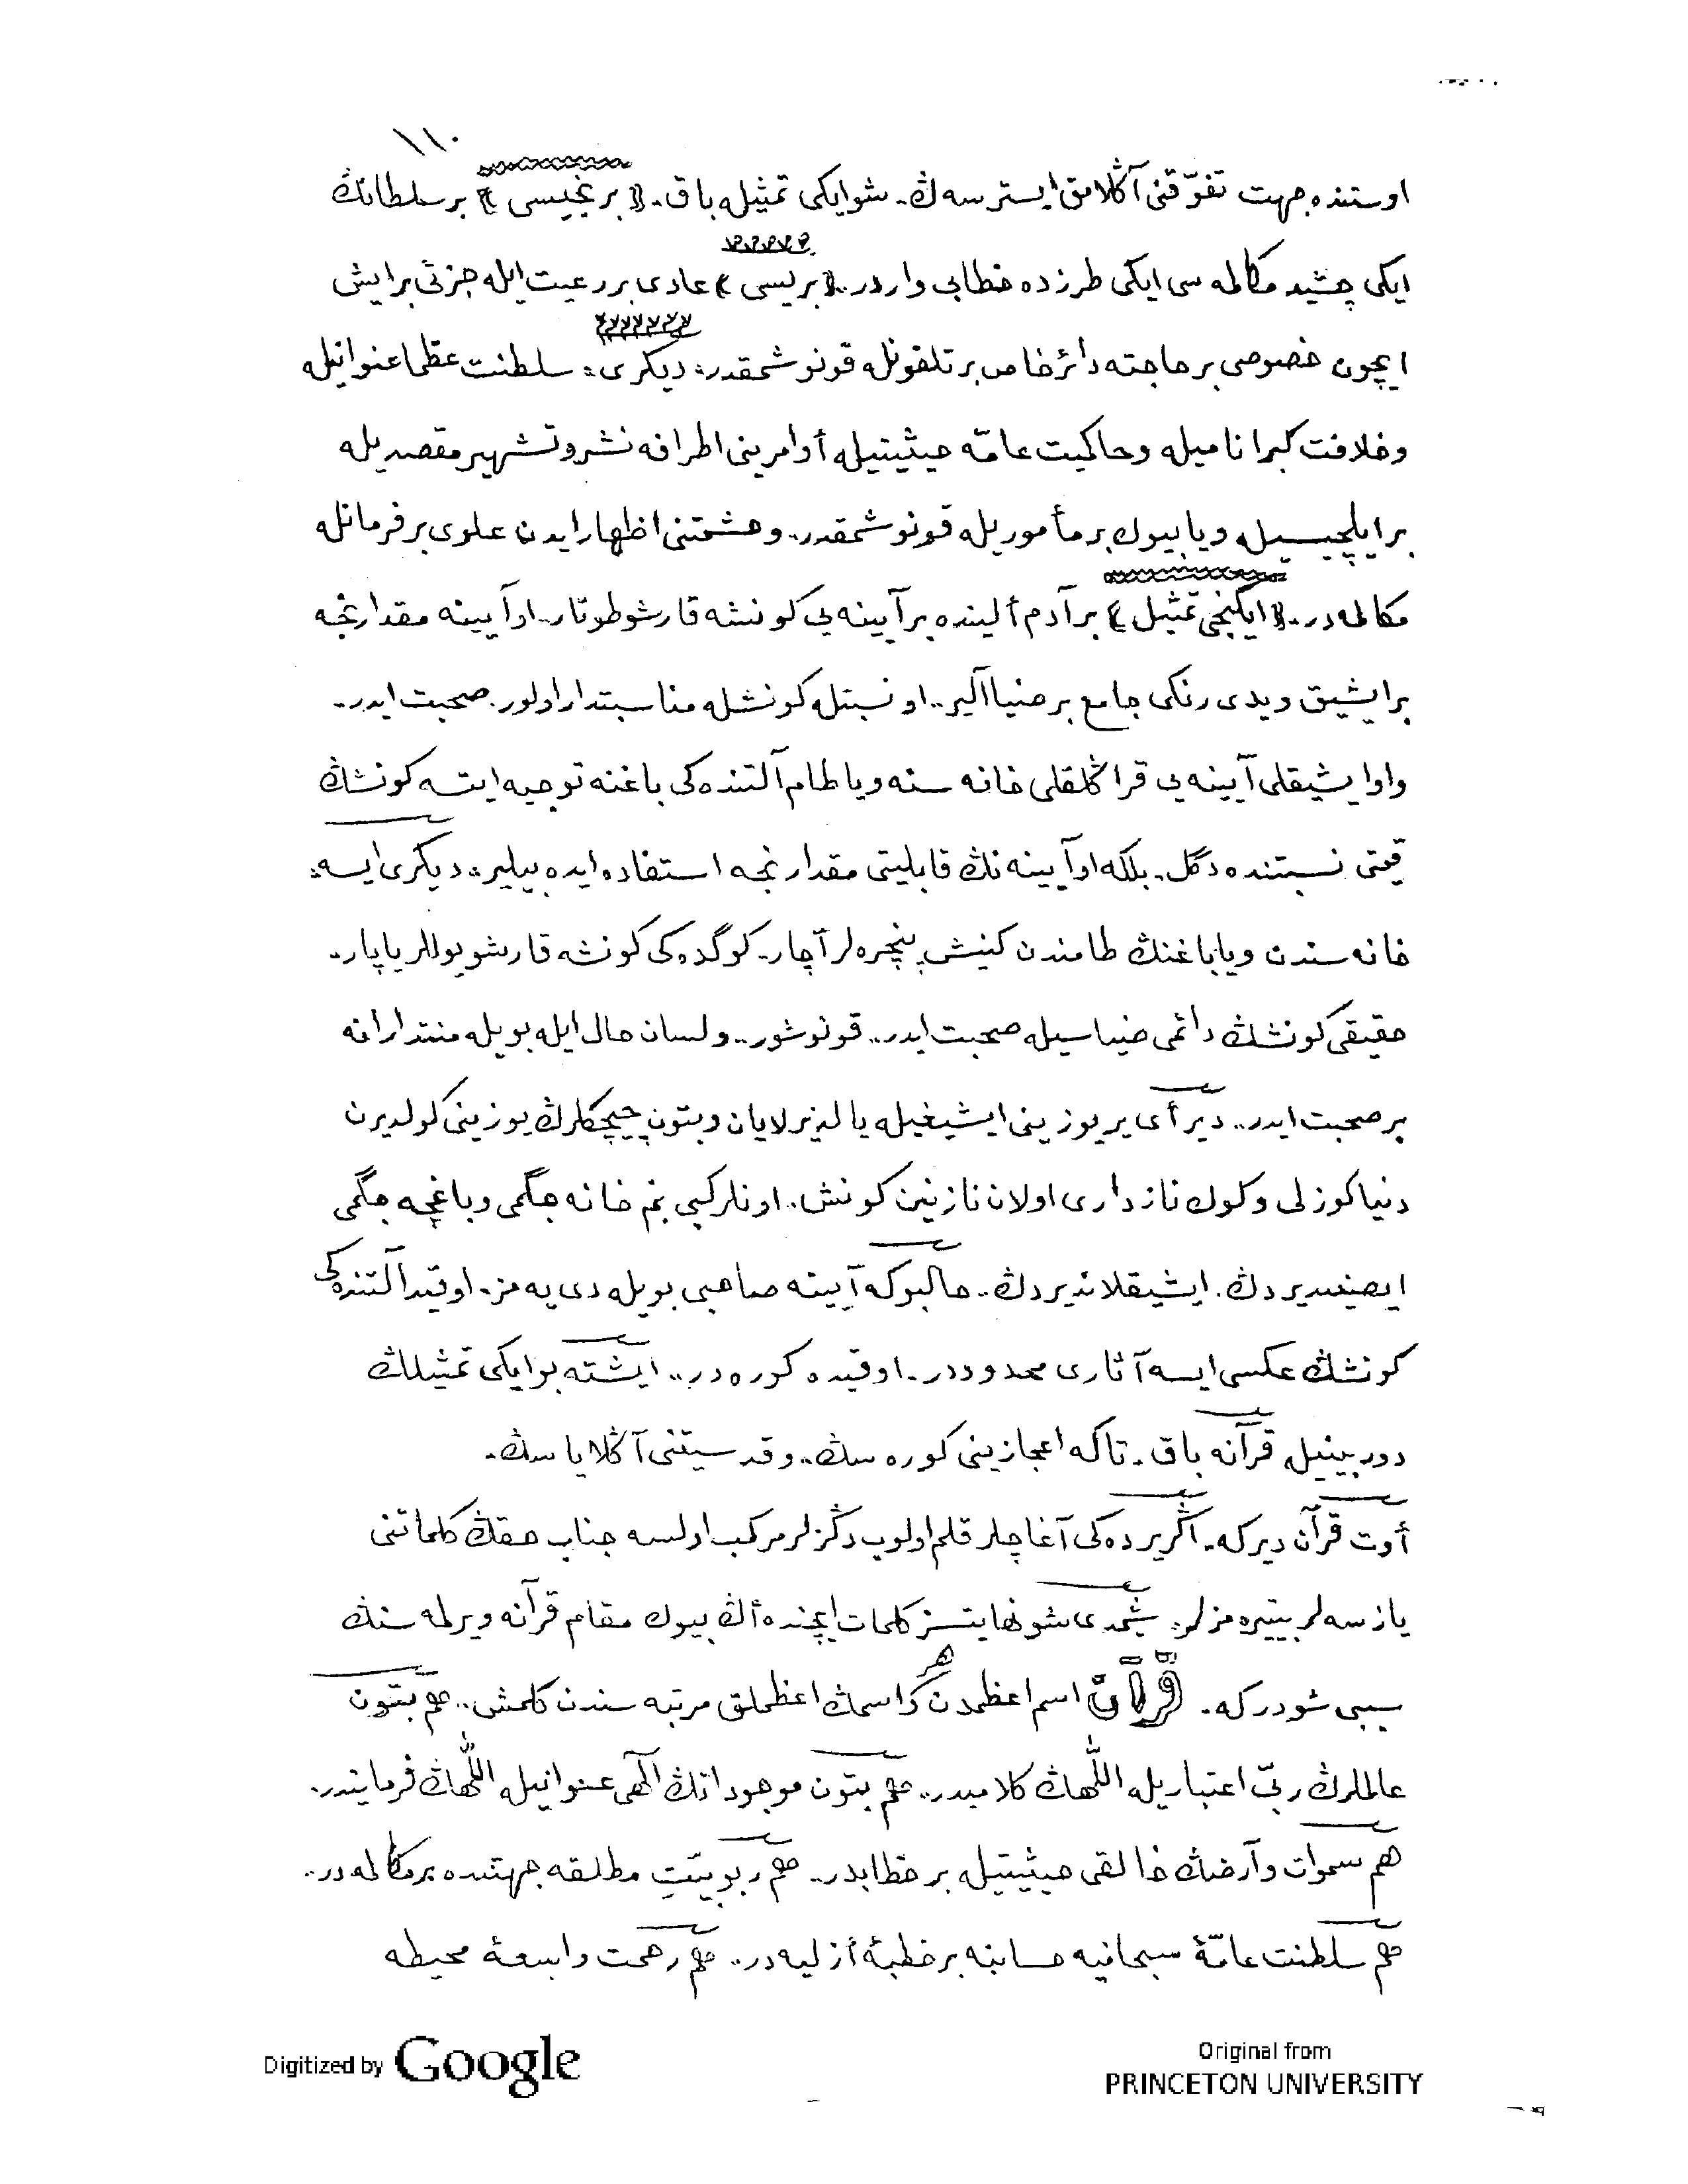 ١١٠
اوستنده جهت تفوّقنى آڭلامق ايسترسه‌ڭ. شو ايكى تمثيله باق. ﴿ برنجيسى ﴾ بر سلطانڭ
ايكى چشيد مكالمه سى ايكى طرزده خطابى واردر.. ﴿ بريسى ﴾ عادى بر رعيت ايله جزئى بر ايش
ايچون خصوصى بر حاجته دائر خاص بر تلفونله قونوشمقدر: ديكرى: سلطنت عظما عنوانيله
و خلافت كبرا ناميله و حاكميت عامّه حيثيتيله أوامرينى اطرافه نشر و تشهير مقصديله
بر ايلچيسيله ويا بيوك بر مأموريله قونوشمقدر.. و حشمتنى اظهار ايدن علوى بر فرمانله
مكالمه‌در.. ﴿ ايكنجى تمثيل ﴾ بر آدم ألينده بر آيينه يى كونشه قارشو طوتار.. او آيينه مقدارنجه
بر ايشيق و يدى رنكى جامع بر ضيا آلير.. او نسبتله كونشله مناسبتدار اولور. صحبت ايدر..
و او ايشيقلى آيينه يى قراڭلقلى خانه سنه ويا طام آلتنده كى باغنه توجيه ايتسه كونشڭ
قيمتى نسبتنده دگل. بلكه او آيينه نڭ قابليتى مقدارنجه استفاده ايده بيلير: ديكرى ايسه:
خانه سندن ويا باغنڭ طامندن كنيش پنچره لر آچار. كوگده كى كونشه قارشو يوللر ياپار.
حقيقى كونشڭ دائمى ضياسيله صحبت ايدر.. قونوشور.. و لسان حال ايله بويله منتدارانه
بر صحبت ايدر.. دير أى ير يوزينى ايشيغيله يالديزلايان و بتون چيچكلرڭ يوزينى كولديرن
دنيا كوزلى و كوك نازدارى اولان نازنين كونش.. اونلر كبى بنم خانه جگمى و باغچه جگمى
ايصينديردڭ. ايشيقلانديردڭ.. حالبوكه آيينه صاحبى بويله دى يه مز. او قيد آلتنده كى
كونشڭ عكسى ايسه آثارى محدوددر.. او قيده كوره‌در.. ايشته بو ايكى تمثيلڭ
دوربينيله قرآنه باق. تاكه اعجازينى كوره سڭ. و قدسيتنى آڭلاياسڭ.
أوت قرآن ديركه. اگر يرده كى آغاچلر قلم اولوب دڭزلر مركب اولسه جناب حقڭ كلماتنى
يازسه لر بيتيره مزلر. شيمدى شو نهايتسز كلمات ايچنده أڭ بيوك مقام قرآنه ويرلمه سنڭ
سببى شودركه. قرآن اسم اعظمدن و هر اسمڭ اعظملق مرتبه سندن كلمش.. هم بتون
عالملرڭ ربّى اعتباريله اللّٰهڭ كلاميدر.. هم بتون موجوداتڭ الٓهى عنوانيله اللّٰهڭ فرمانيدر.
هم سموات و أرضڭ خالقى حيثيتيله بر خطابدر.. هم ربوبيّتِ مطلقه جهتنده بر مكالمه‌در..
هم سلطنت عامّهٔ سبحانيه حسابنه بر خطبهٔ أزليه‌در.. هم رحمت واسعهٔ محيطه
Digitized by Google
Original from
PRINCETON UNIVERSITY